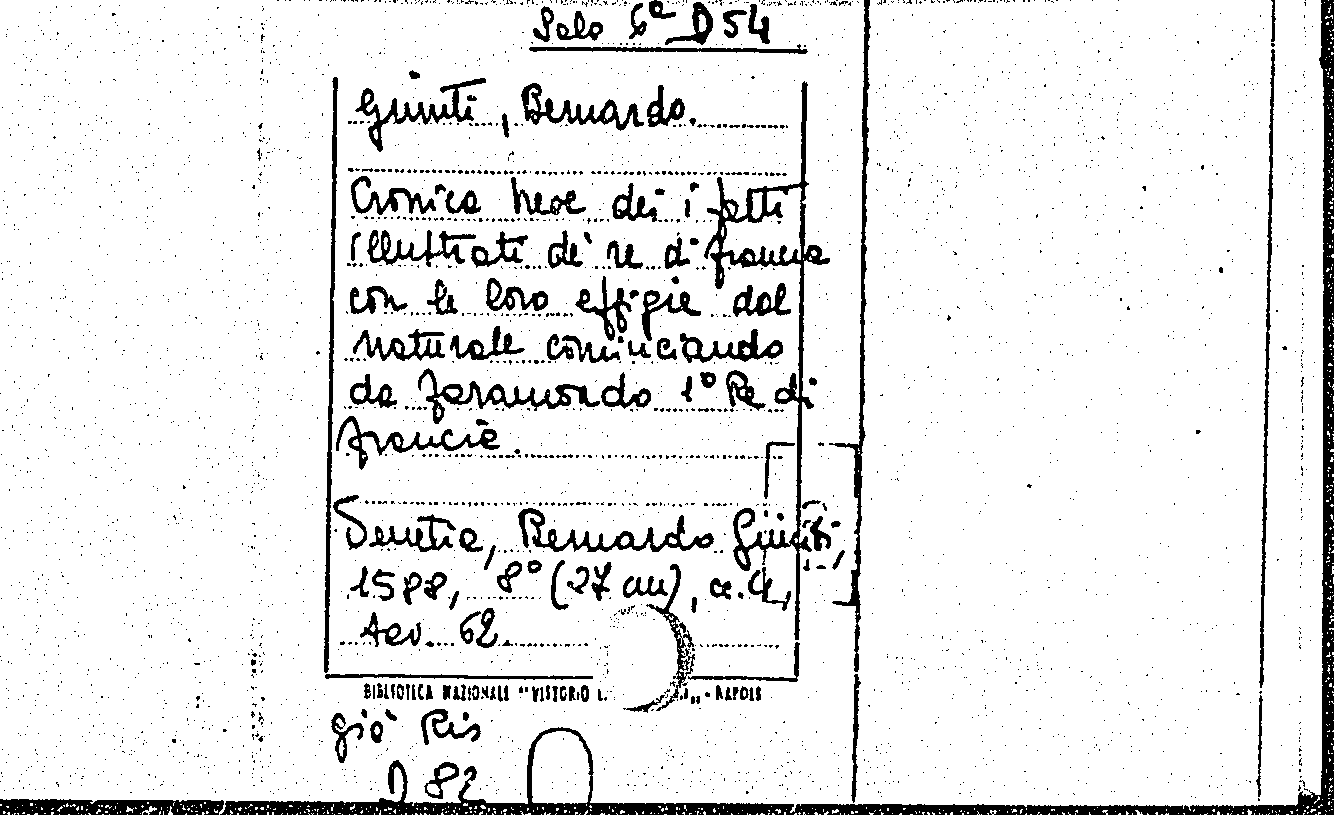 Sala 6ª D 54
Giunti, Bernardo.
Cronica breve dei i fatti
illustrati de' re di francia
con le loro effigie dal
naturale cominciando
da faramondo 1º Re di
francia.
Venetia, Bernardo Giunti,
1588, 8º (27 cm), cc. 4,
tav. 62.
BIBLIOTECA NAZIONALE "VITTORIO - NAPOLI
già Ris
D 82